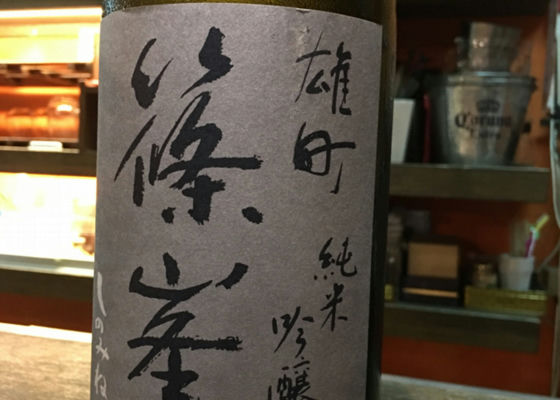 雄町
純米
吟醸
篠峯
しのみね
Corona
Extra